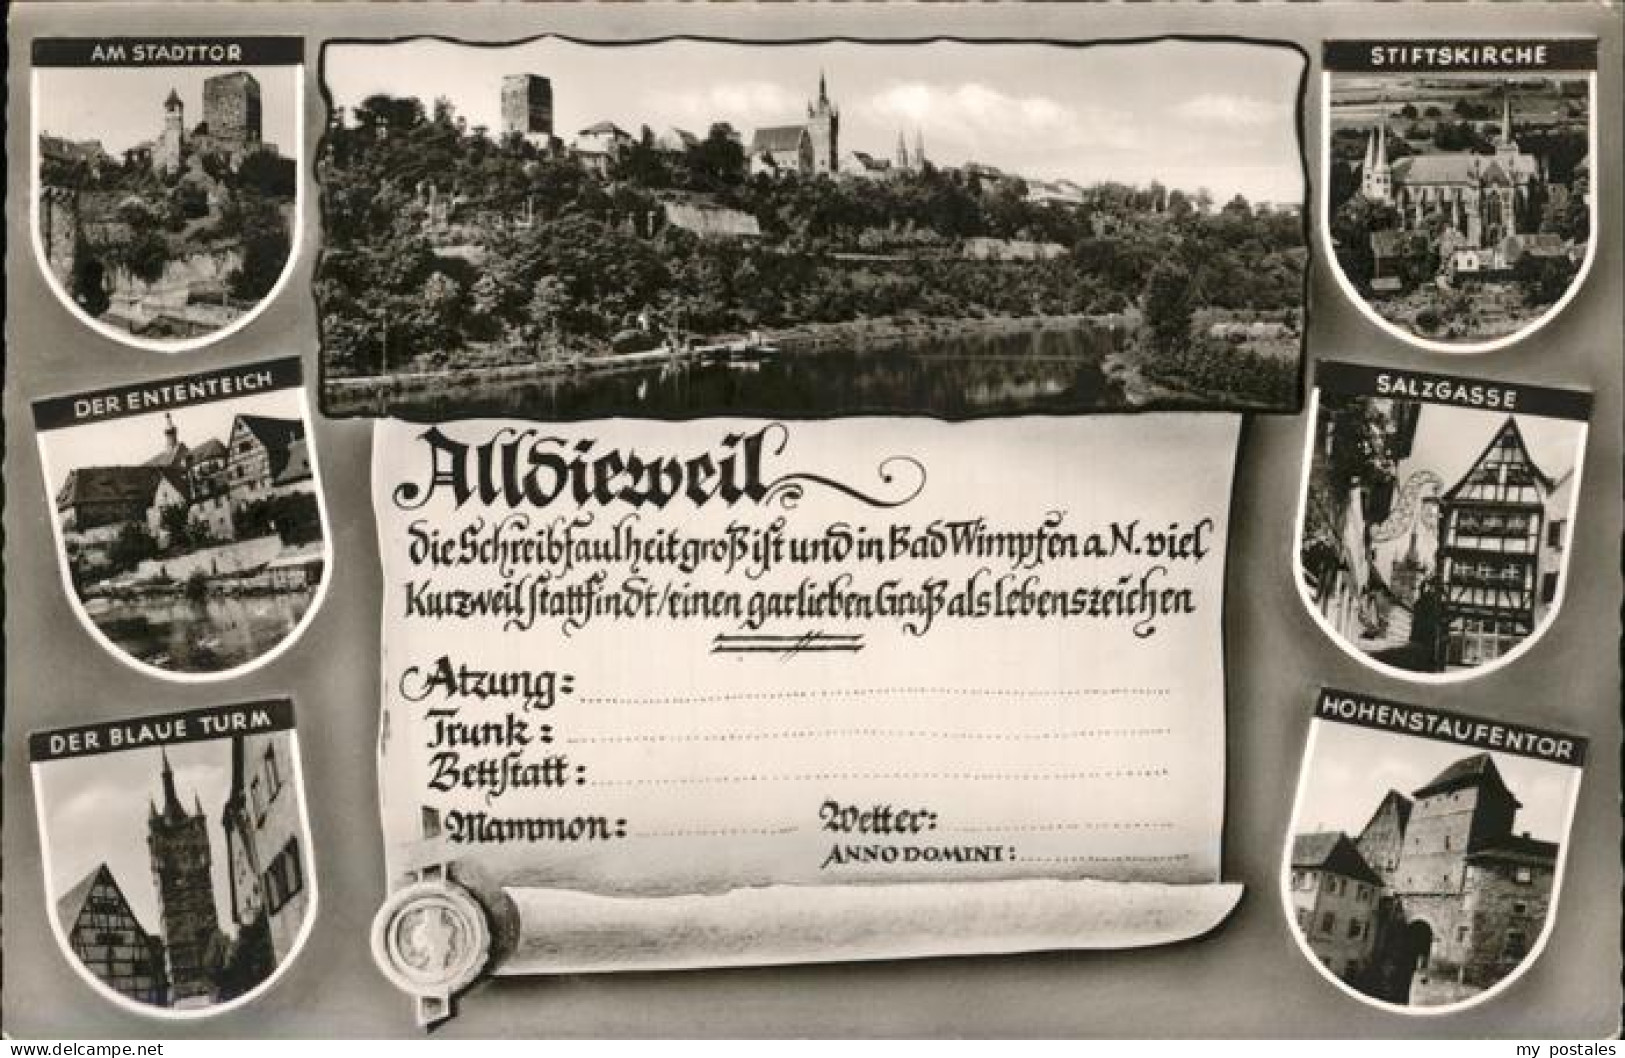 AM STADTTOR
STIFTSKIRCHE
DER ENTENTEICH
SALZGASSE
DER BLAUE TURM
HOHENSTAUFENTOR
Alldieweil
die Schreibfaulheit groß ist und in Bad Wimpfen a. N. viel
Kurzweil stattfindt / einen gar lieben Gruß als Lebenszeichen
Atzung:
Trunk:
Bettstatt:
Mammon: Wetter:
ANNO DOMINI:
delcampe.net
my_postales